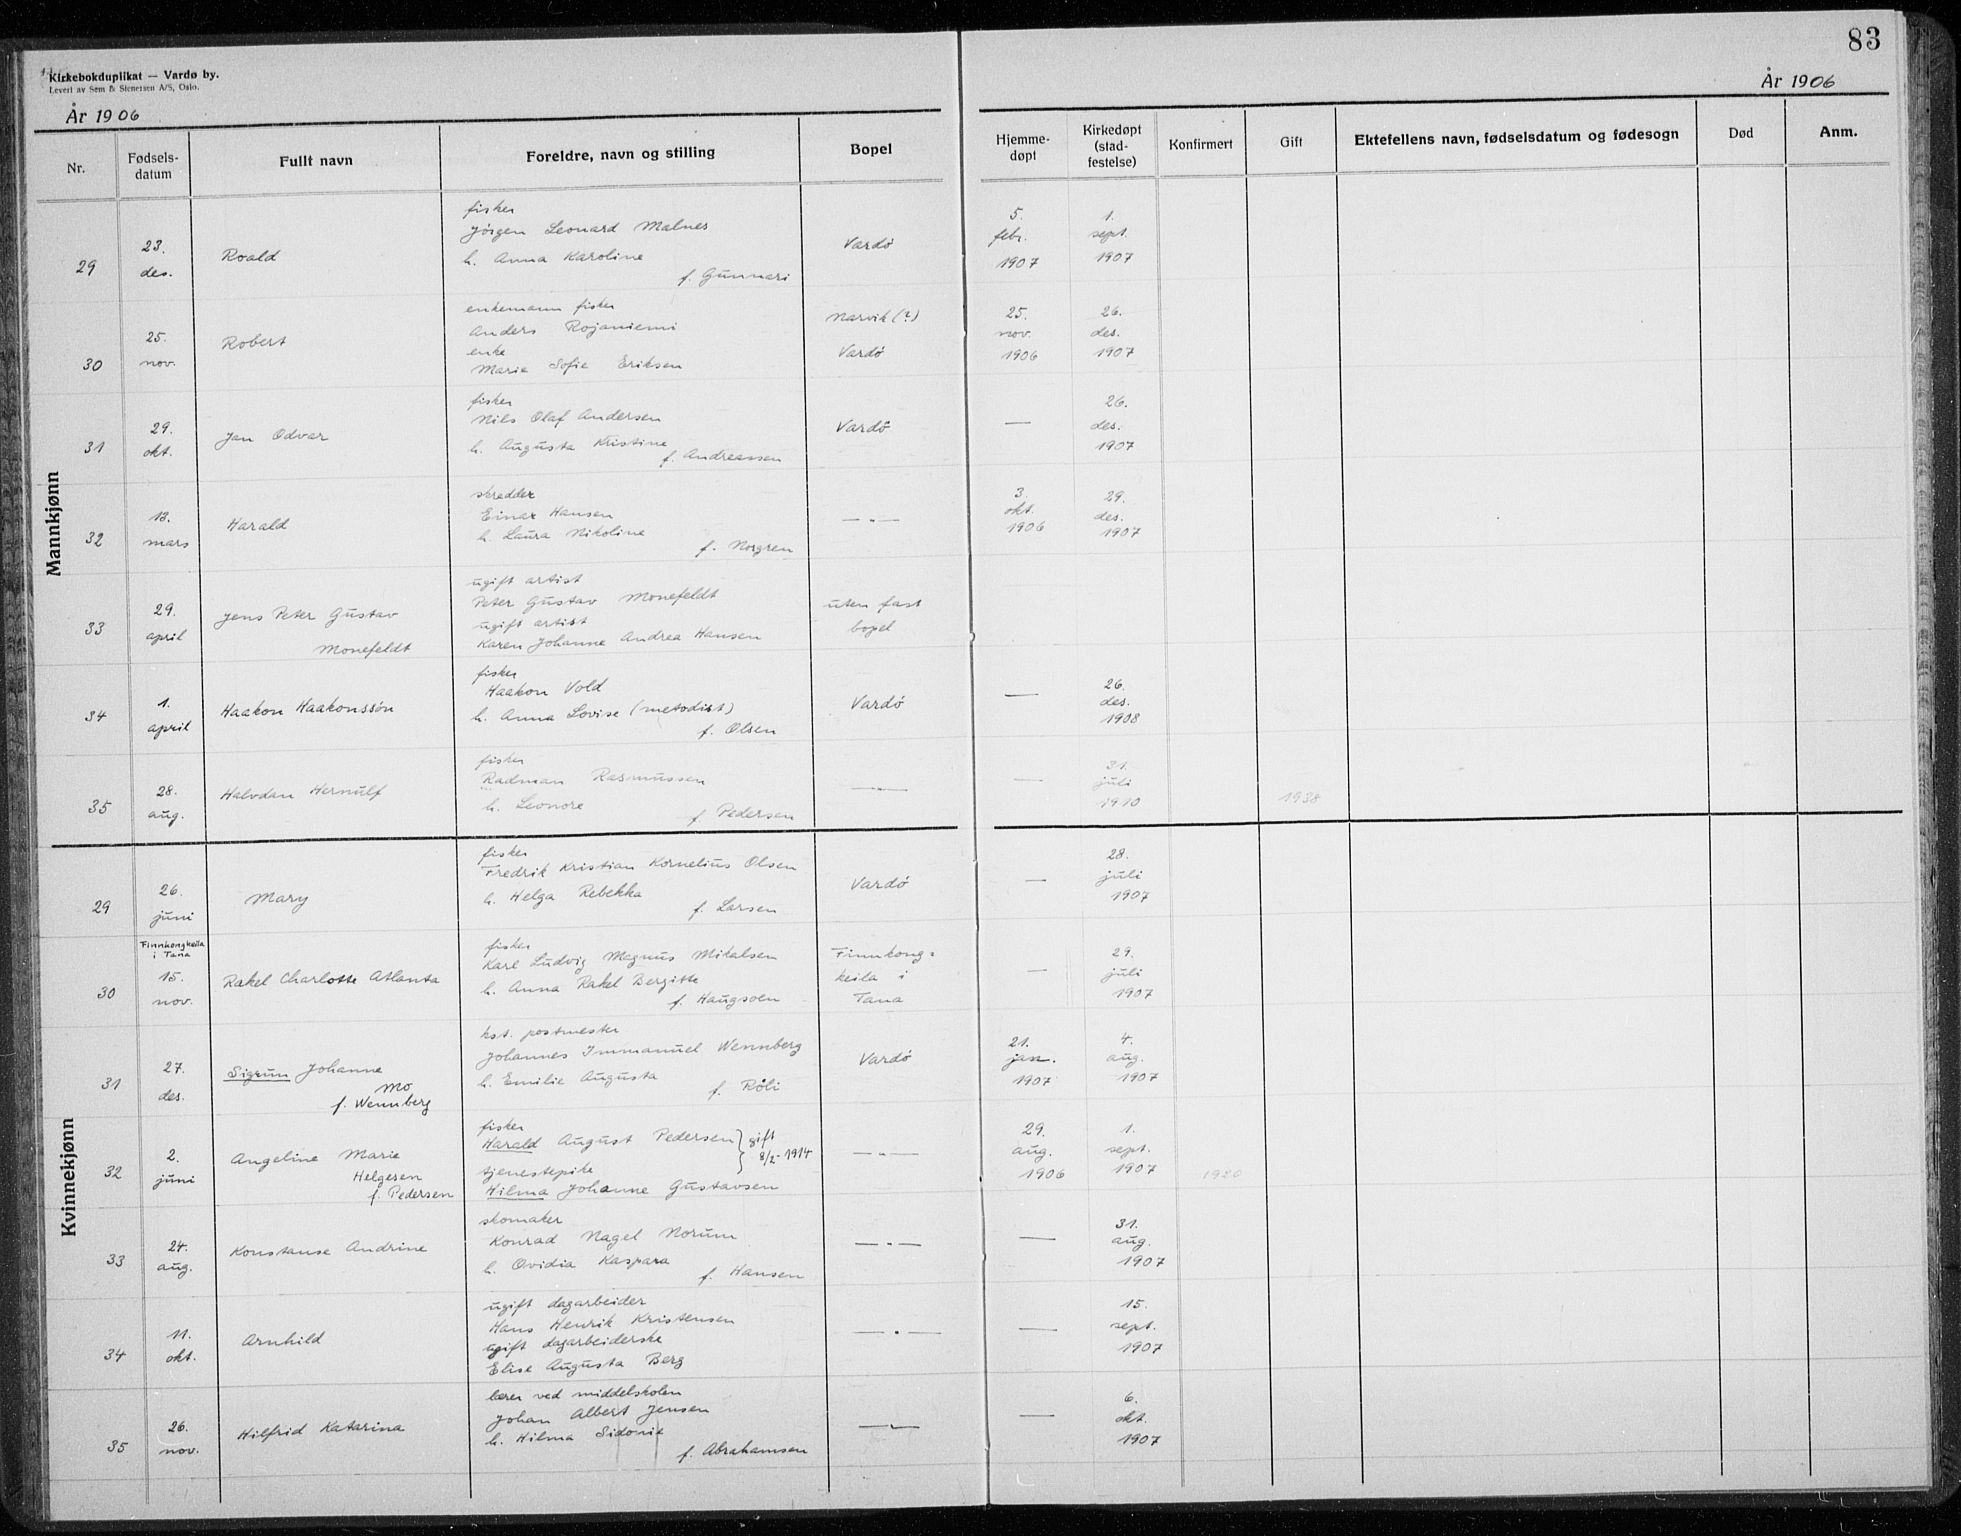 83
Kirkebokduplikat — Vardø by.
Levert av Sem & Stenersen A/S, Oslo.
År 1906
År 1906
Nr.
Fødsels-
datum
Fullt navn
Foreldre, navn og stilling
Bopel
Hjemme-
døpt
Kirkedøpt
(stad-
festelse)
Konfirmert
Gift
Ektefellens navn, fødselsdatum og fødesogn
Død
Anm.
Mannkjønn
29
23.
des.
Roald
fisker
Jörgen Leonard Malnes
h. Anna Karoline
f. Gunnari
Vardö
5.
febr.
1907
1.
sept.
1907
30
25.
nov.
Robert
enkemann fisker
Anders Rojaniemi
enke
Marie Sofie Eriksen
Narvik (?)
Vardö
25.
nov.
1906
26.
des.
1907
31
29.
okt.
Jan Odvar
fisker
Nils Olaf Andersen
h. Augusta Kristine
f. Andreassen
Vardö
—
26.
des.
1907
32
13.
mars
Harald
skredder
Einar Hansen
h. Laura Nikoline
f. Norgren
— „ —
3.
okt.
1906
29.
des.
1907
33
29.
april
Jens Peter Gustav
Monefeldt
ugift artist
Peter Gustav Monefeldt
ugift artist
Karen Johanne Andrea Hansen
uten fast
bopel
34
1.
april
Haakon Haakonssön
fisker
Haakon Vold
h. Anna Lovise (metodist)
f. Olsen
Vardö
—
26.
des.
1908
35
28.
aug.
Halvdan Hernulf
fisker
Radman Rasmussen
h. Leonore
f. Pedersen
— „ —
—
31.
juli
1910
1938
Kvinnekjønn
29
26.
juni
Mary
fisker
Fredrik Kristian Kornelius Olsen
h. Helga Rebekka
f. Larsen
Vardö
—
28.
juli
1907
30
Finnkongkeila
i Tana
15.
nov.
Rakel Charlotte Atlanta
fisker
Karl Ludvig Magnus Mikalsen
h. Anna Rakel Bergitte
f. Haugsoen
Finnkong=
keila i
Tana
—
29.
juli
1907
31
27.
des.
Sigrun Johanne
Mo
f. Wennberg
kst. postmester
Johannes Immanuel Wennberg
h. Emilie Augusta
f. Röli
Vardö
21.
jan.
1907
4.
aug.
1907
32
2.
juni
Angeline Marie
Helgesen
f. Pedersen
fisker
Harald August Pedersen } gift
8/2-1914
tjenestepike
Hilma Johanne Gustavsen
— „ —
29.
aug.
1906
1.
sept.
1907
1920
33
24.
aug.
Konstanse Andrine
skomaker
Konrad Nagel Norum
h. Ovidia Kaspara
f. Hansen
— „ —
—
31.
aug.
1907
34
11.
okt.
Arnhild
ugift dagarbeider
Hans Henrik Kristensen
ugift dagarbeiderske
Elise Augusta Berg
— „ —
—
15.
sept.
1907
35
26.
nov.
Hilfrid Katarina
lærer ved middelskolen
Johan Albert Jensen
h. Hilma Sidonie
f. Abrahamsen
— „ —
—
6.
okt.
1907